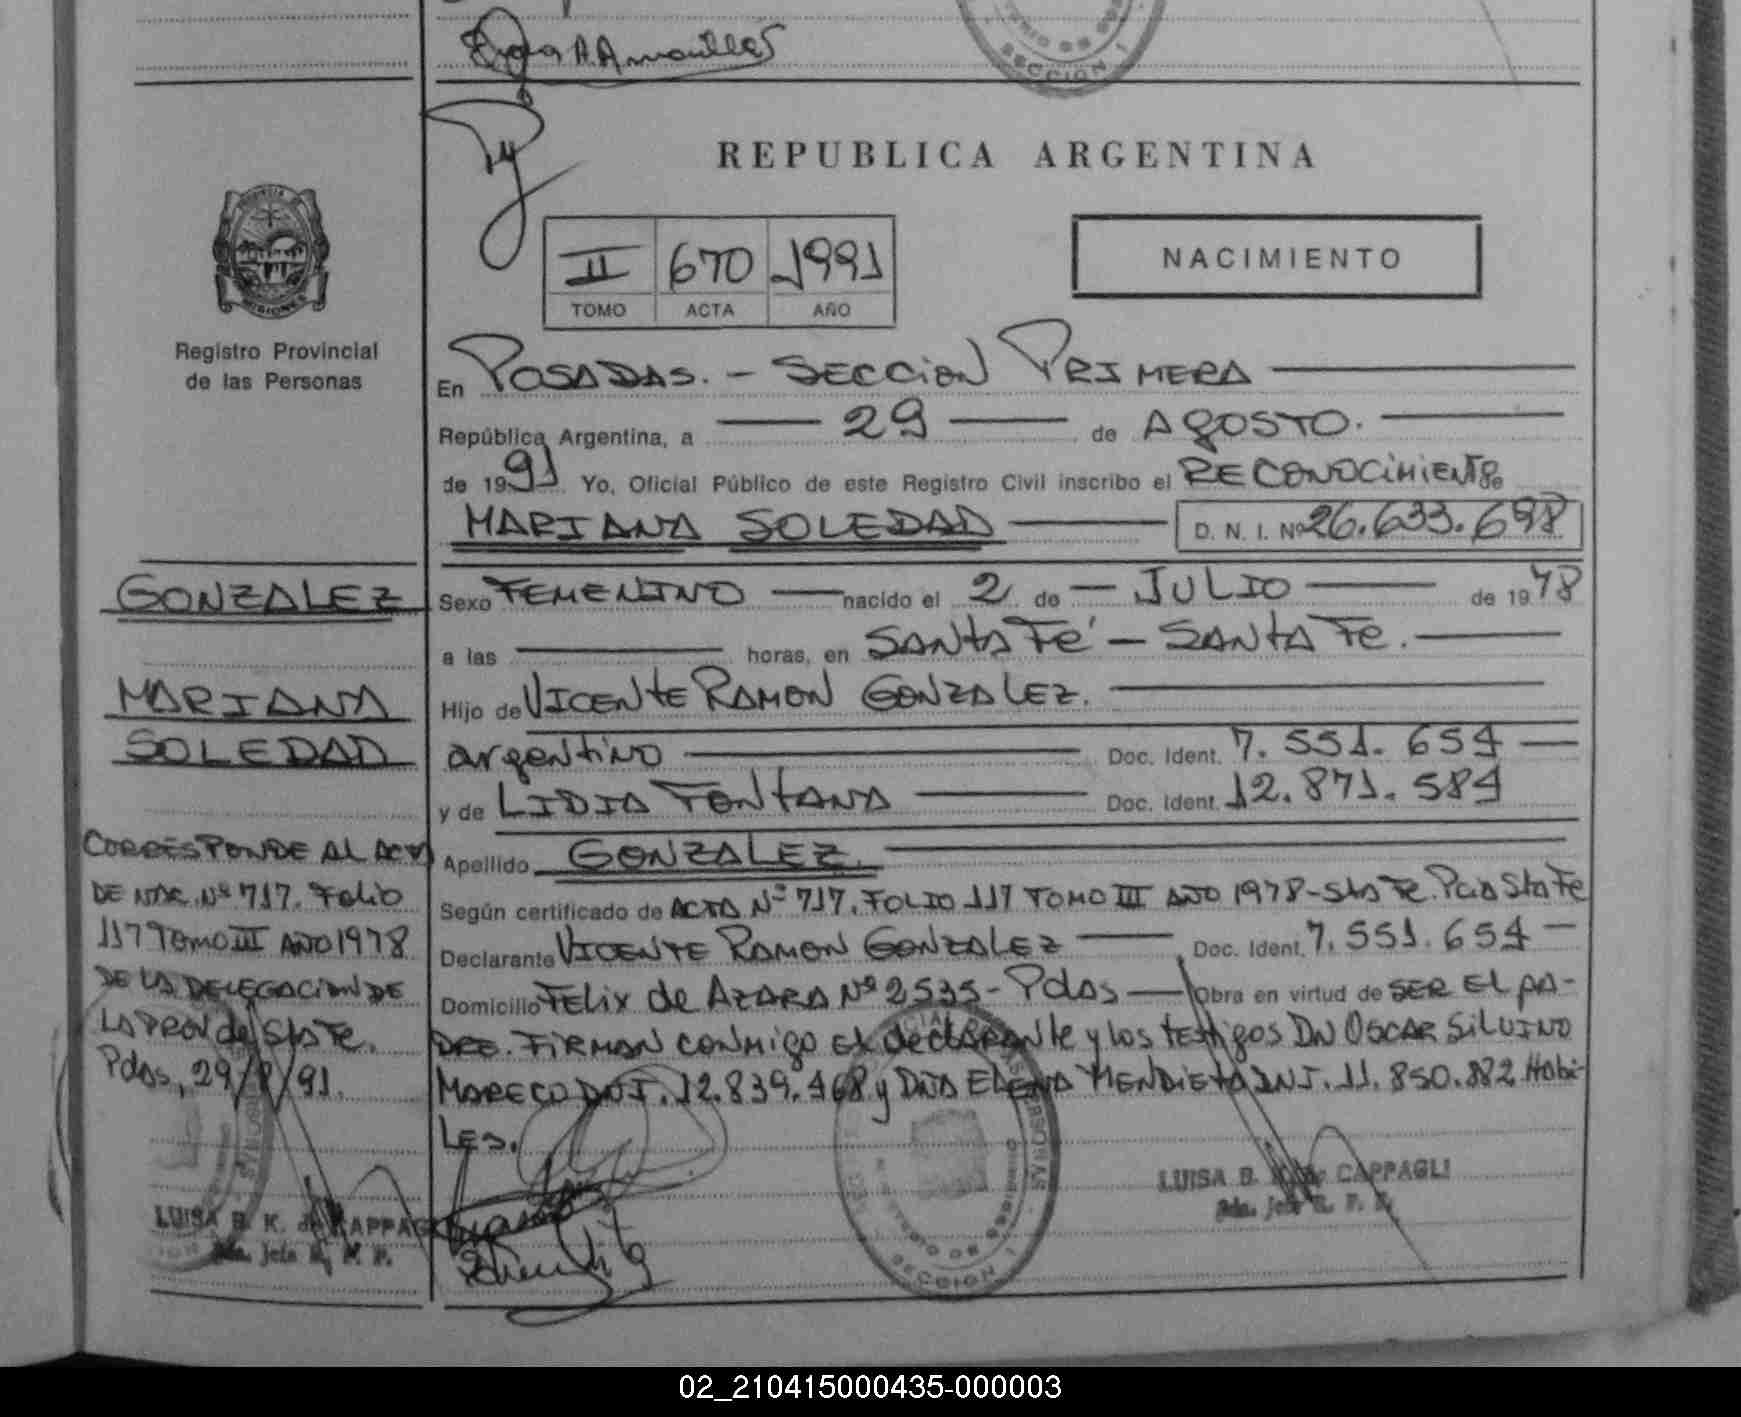 REPUBLICA ARGENTINA
II 670 1991
TOMO ACTA AÑO
NACIMIENTO
Registro Provincial
de las Personas
En POSADAS. - SECCION PRIMERA
República Argentina, a 29 de AGOSTO.
de 1991 Yo, Oficial Público de este Registro Civil inscribo el RECONOCIMIENTO de
MARIANA SOLEDAD D. N. I. Nº 26.633.698
GONZALEZ
MARIANA
SOLEDAD
Sexo FEMENINO nacido el 2 de JULIO de 1978
a las horas, en SANTA FE - SANTA FE.
Hijo de VICENTE RAMON GONZALEZ.
argentino Doc. Ident. 7.551.654
y de LIDIA FONTANA Doc. Ident. 12.871.584
Apellido GONZALEZ.
Según certificado de ACTA Nº 717. FOLIO 117 TOMO III AÑO 1978 - Sta Fe. Pcia Sta Fe
Declarante VICENTE RAMON GONZALEZ Doc. Ident. 7.551.654
Domicilio FELIX de AZARA Nº 2535 - Pdas Obra en virtud de SER EL PA-
DRE. FIRMAN CONMIGO El declarante y los testigos Dn OSCAR SILVINO
MARECO DNI. 12.839.468 y Dña ELENA MENDIETA DNI. 11.850.882 Habi-
LES.
CORRESPONDE AL ACTA
DE NAC. Nº 717. Folio
117 Tomo III AÑO 1978
DE LA DELEGACION DE
LA PROV de Sta Fe.
Pdas, 29/8/91.
LUISA B. K. de CAPPAGLI
LUISA B. K. de CAPPAGLI
SECCION 1
SECCION 1
02_210415000435-000003